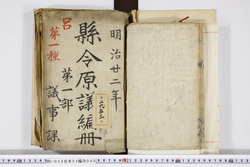 明治廿二年
縣令原議編冊
第一部
議事課
呂
第一種